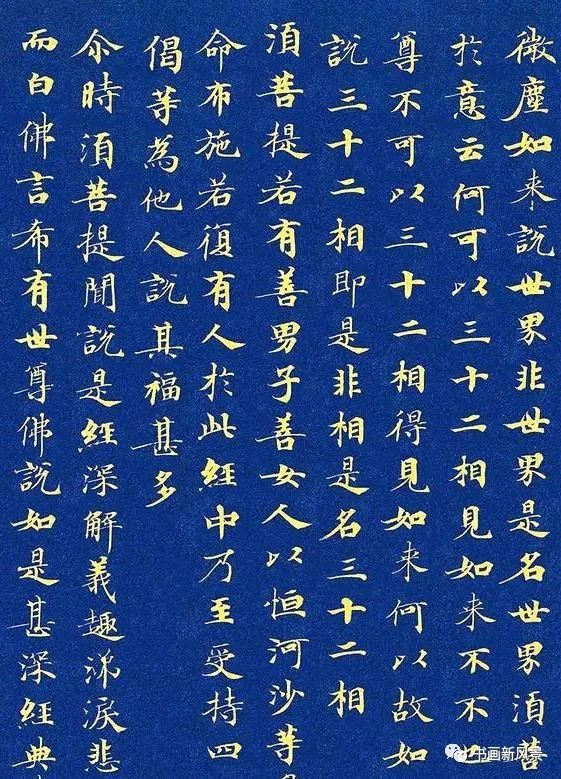 微塵如来說世界非世界是名世界湏菩
於意云何可以三十二相見如来不不
尊不可以三十二相得見如来何以故如
說三十二相即是非相是名三十二相
湏菩提若有善男子善女人以恒河沙等
命布施若復有人於此經中乃至受持四
偈等為他人說其福甚多
尒時湏菩提聞說是經深解義趣涕淚悲
而白佛言希有世尊佛說如是甚深經典
书画新风景